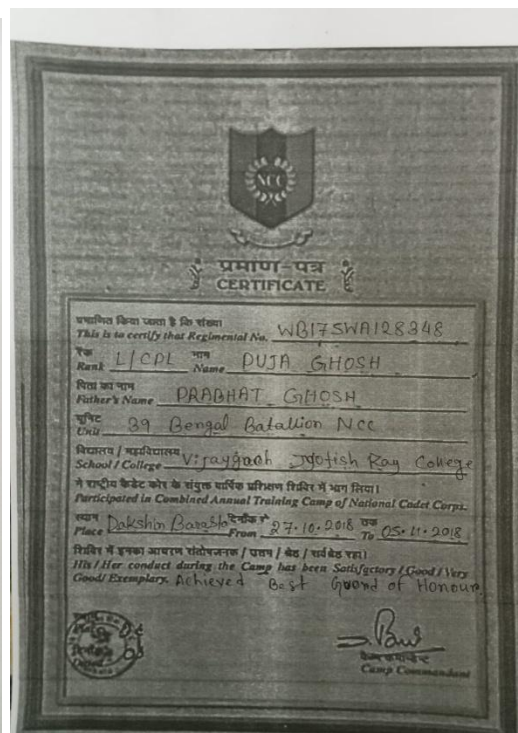 NCC
प्रमाण-पत्र
CERTIFICATE
प्रमाणित किया जाता है कि संख्या
This is to certify that Regimental No. WB17SWA128348
रैंक L/CPL नाम PUJA GHOSH
Rank Name
पिता का नाम
Father's Name PRABHAT GHOSH
यूनिट
Unit 39 Bengal Batallion NCC
विद्यालय / महाविद्यालय
School / College Vijaygarh Jyotish Ray College
ने राष्ट्रीय कैडेट कोर के संयुक्त वार्षिक प्रशिक्षण शिविर में भाग लिया।
Participated in Combined Annual Training Camp of National Cadet Corps.
स्थान दिनाँक से तक
Place Dakshin From 27.10.2018 To 05.11.2018
शिविर में इनका आचरण संतोषजनक / उत्तम / श्रेष्ठ / सर्वश्रेष्ठ रहा।
His / Her conduct during the Camp has been Satisfactory / Good / Very
Good / Exemplary. Achieved Best Guard of Honour
कैम्प कमान्डेन्ट
Camp Commandant